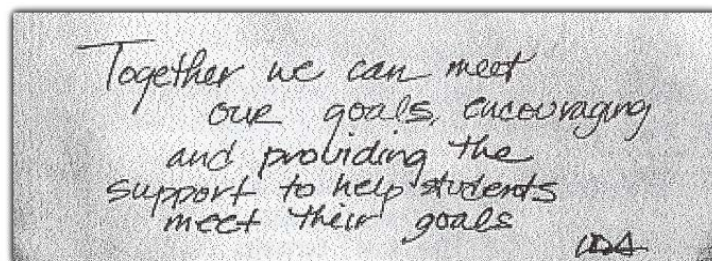 Together we can meet
our goals, encouraging
and providing the
support to help students
meet their goals